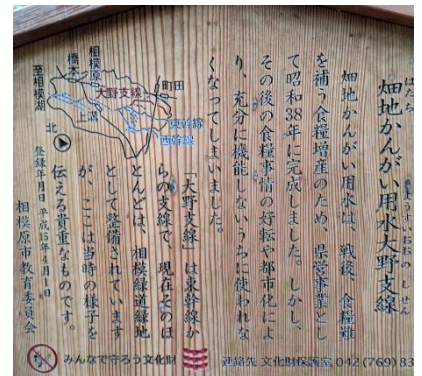 はたち
うすいおおのしせん
畑地かんがい用水大野支線
畑地かんがい用水は、戦後、食糧難
を補う食糧増産のため、県営事業とし
て昭和38年に完成しました。しかし、
その後の食糧事情の好転や都市化によ
り、充分に機能しないうちに使われな
くなってしまいました。
「大野支線」は東幹線か
らの支線で、現在そのほ
とんどは、相模緑道緑地
として整備されています
が、ここは当時の様子を
伝える貴重なものです。
登録年月日 平成15年4月1日
相模原市教育委員会
町田
相模原
橋本
大野支線
上溝
東幹線
西幹線
至相模湖
北
みんなで守ろう文化財
連絡先 文化財保護室 042(769)83